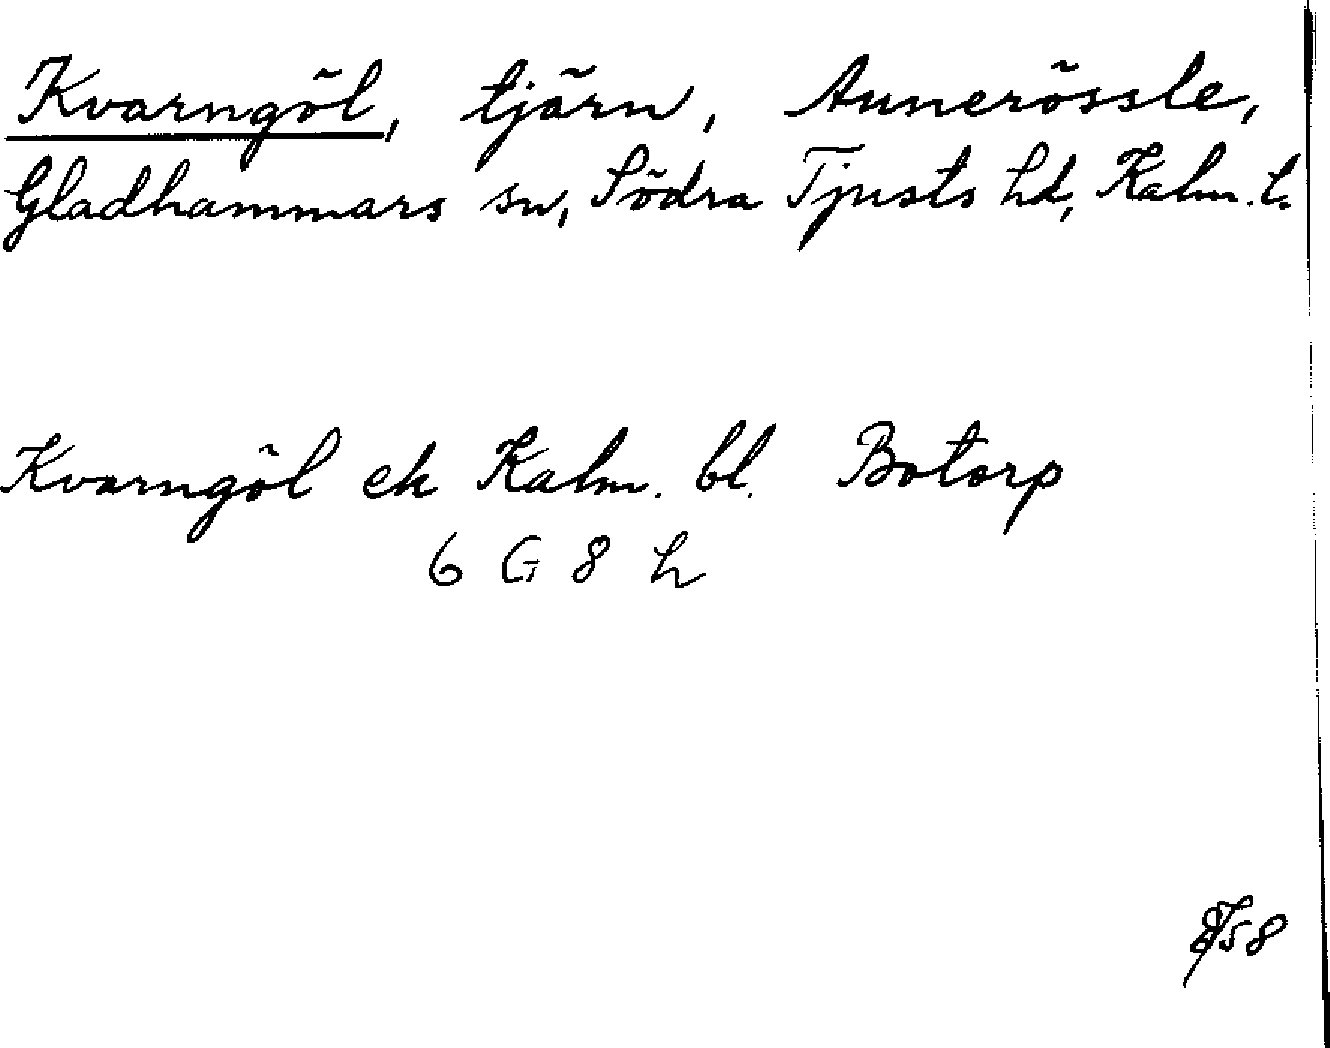 Kvarngöl, tjärn, Annerössle,
Gladhammars sn, Södra Tjusts hd, Kalm. l.
Kvarngöl ek Kalm. bl. Botorp
6 G 8 h
58